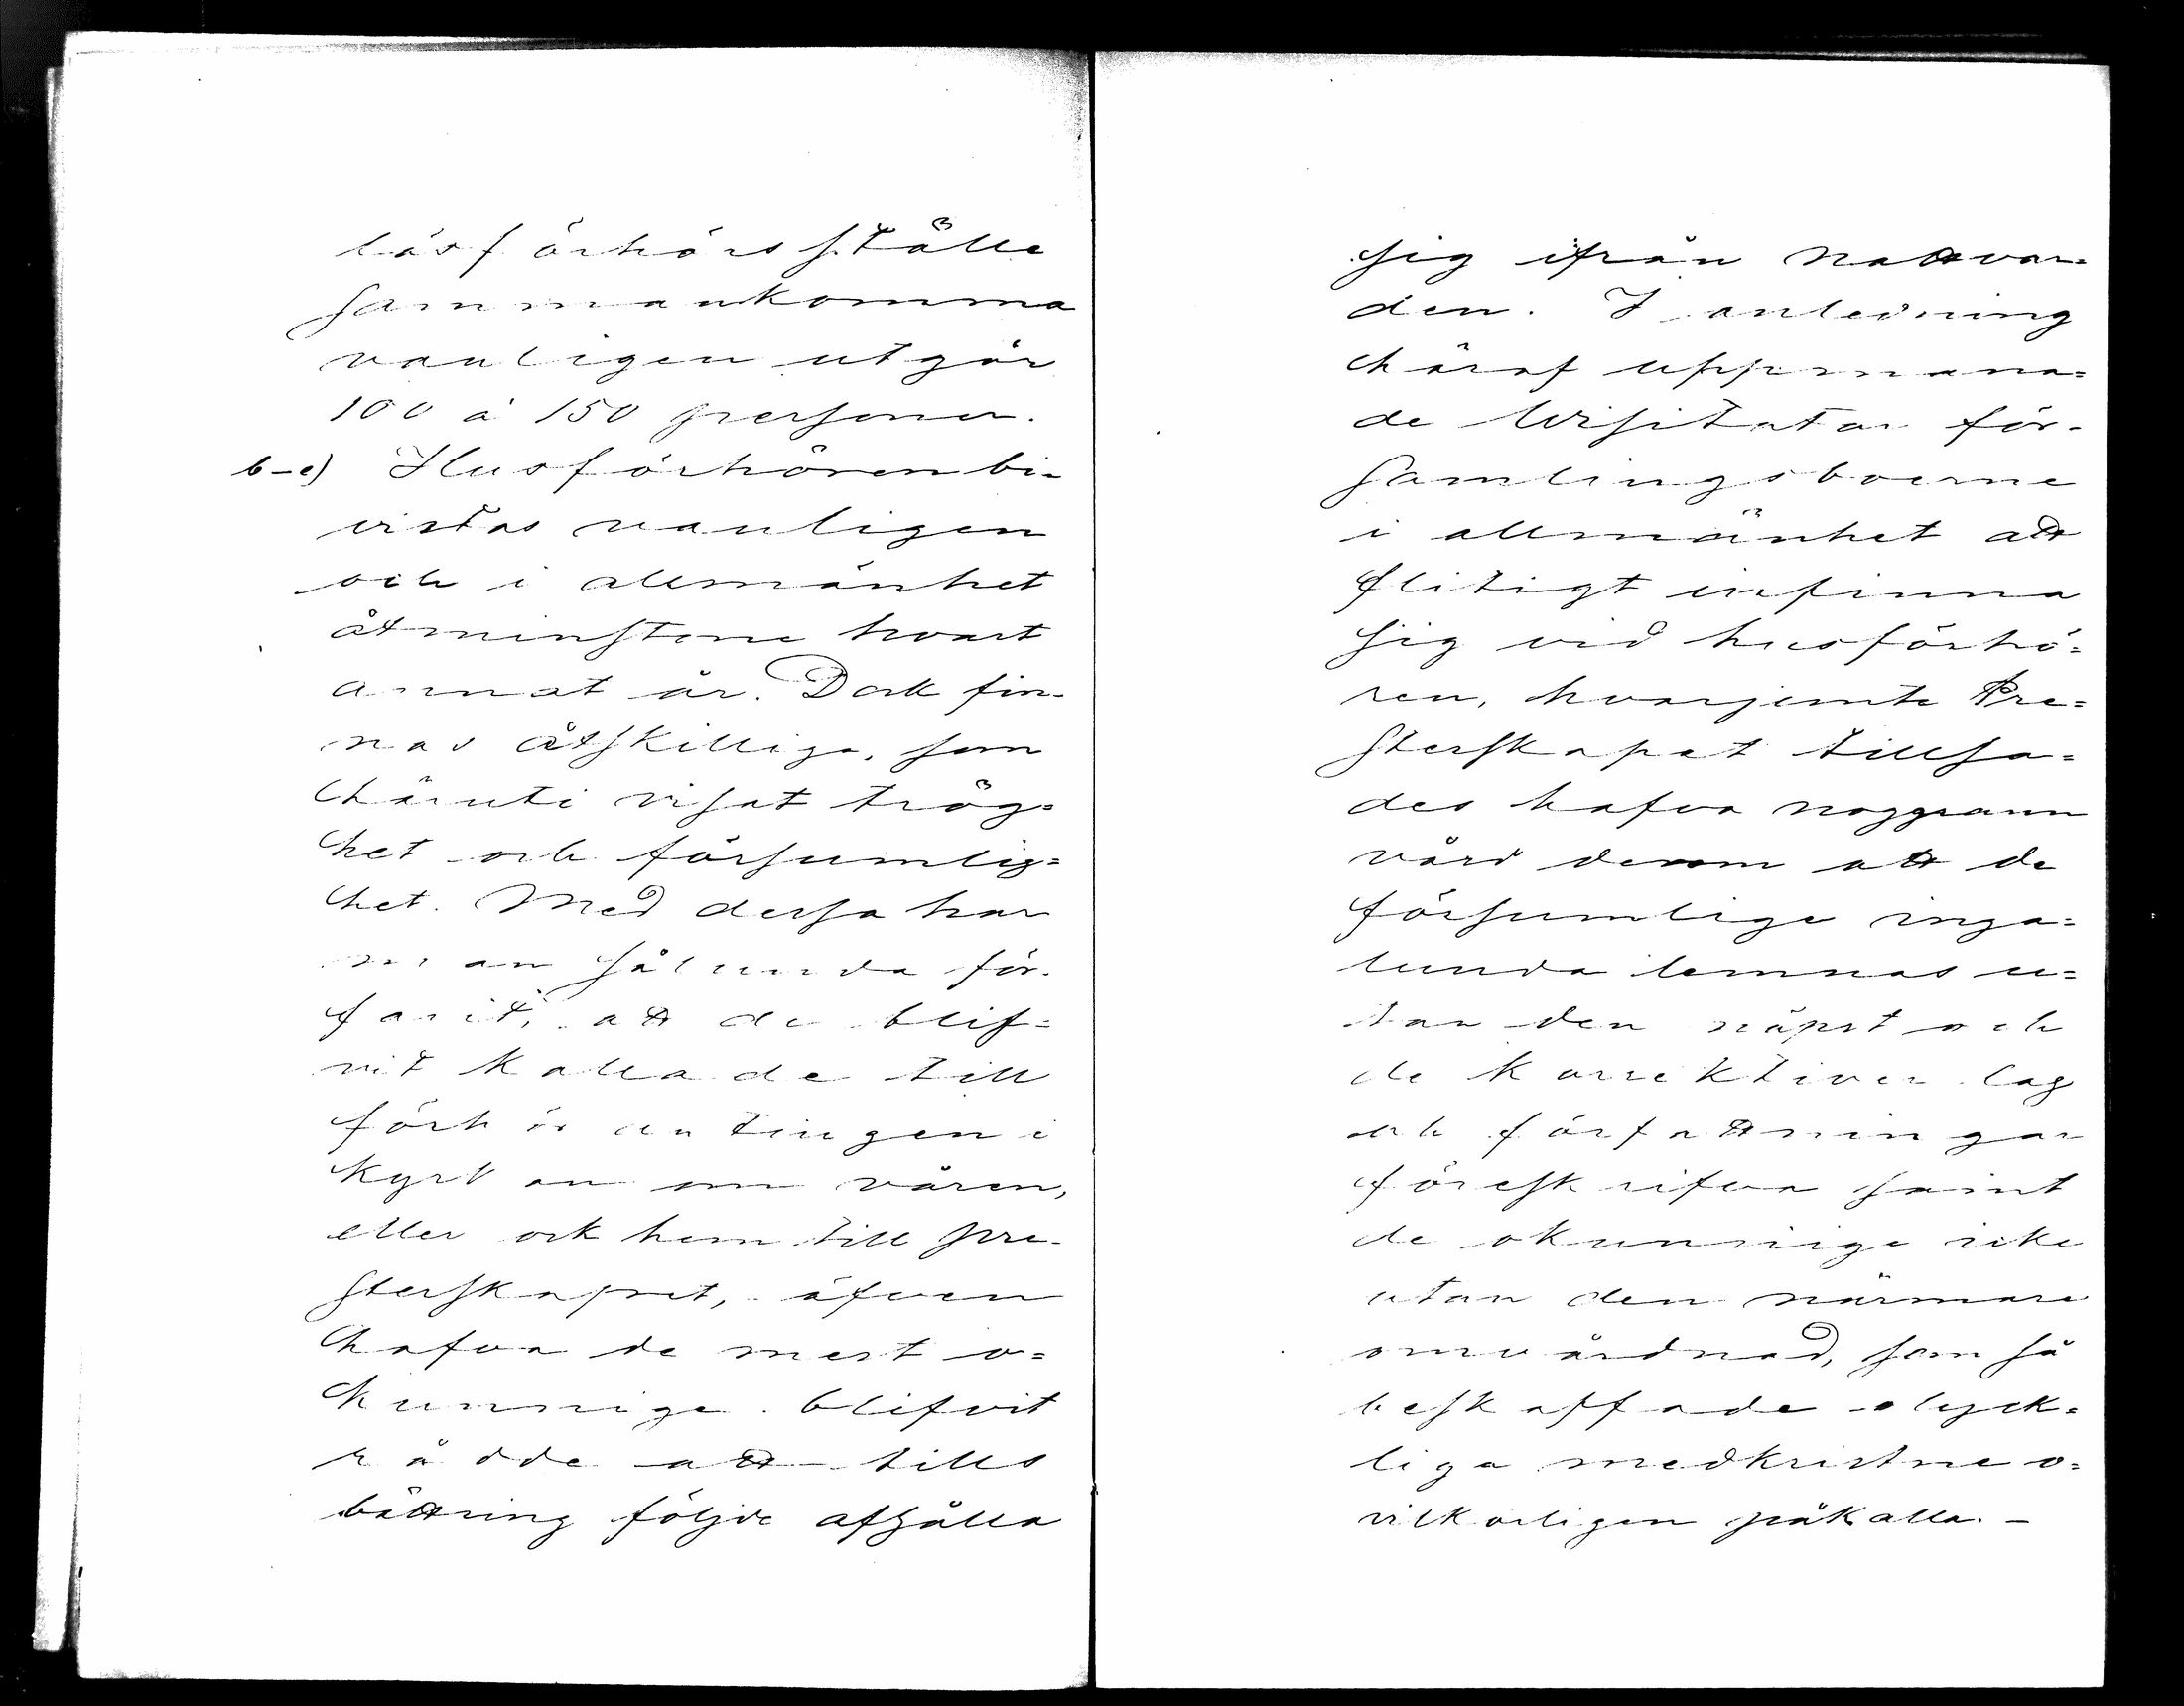 läsförhörsställe
sammankomma
vanligen utgör
100 à 150 personer.
b-e) Husförhören bi-
vistas vanligen
och i allmänhet
åtminstone hvart
annat år. Dock fin-
nas åtskilliga, som
häruti visat trög=
het och försumlig=
het. Med dessa har
man sålunda för-
farit, att de blif=
vit kallade till
förhör antingen i
kyrkan om våren,
eller ock hem till pre-
sterskapet, äfven
hafva de mest o=
kunnige blifvit
rådde att tills
bättring följde afhålla
sig ifrån nattvar=
den. I anledning
häraf uppmana=
de Visitator för-
samlingsboerne
i allmänhet att
flitigt infinna
sig vid husförhö=
ren, hvarjemte Pre=
sterskapet tillsa=
des hafva noggrann
vård derom att de
försumlige inga=
lunda lemnas u=
tan den näpst och
de korrektiver lag
och författningar
föreskrifva samt
de okunnige icke
utan den närmare
omvårdnad, som så
beskaffade olyck=
liga medkristne o=
vilkorligen påkalla. –